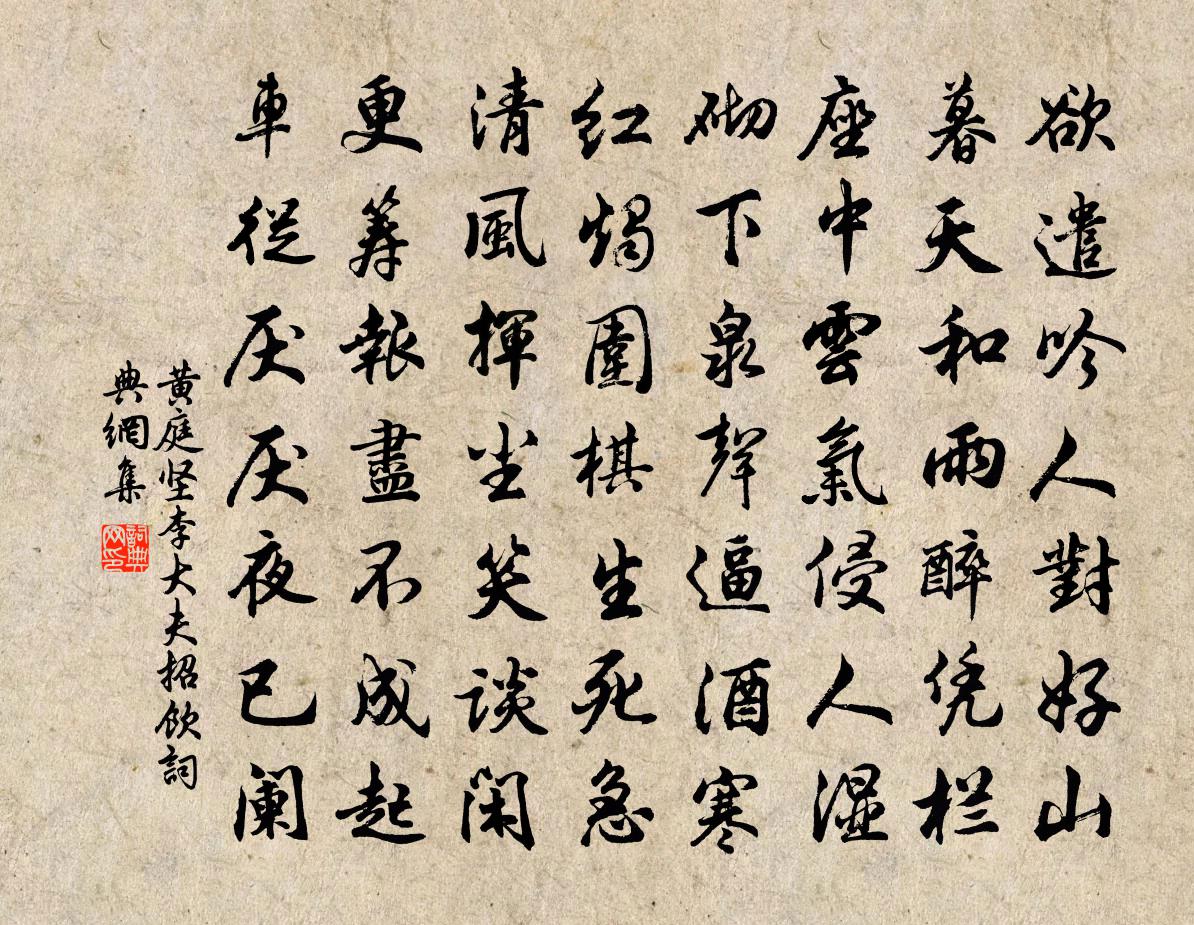 欲遣吟人對好山
暮天和雨醉凭栏
座中雲氣侵人湿
砌下泉聲逼酒寒
红燭圍棋生死急
清風揮尘笑談闲
更筹報盡不成起
車從厌厌夜已阑
黄庭坚李大夫招飲詞
典網集
詞典网印